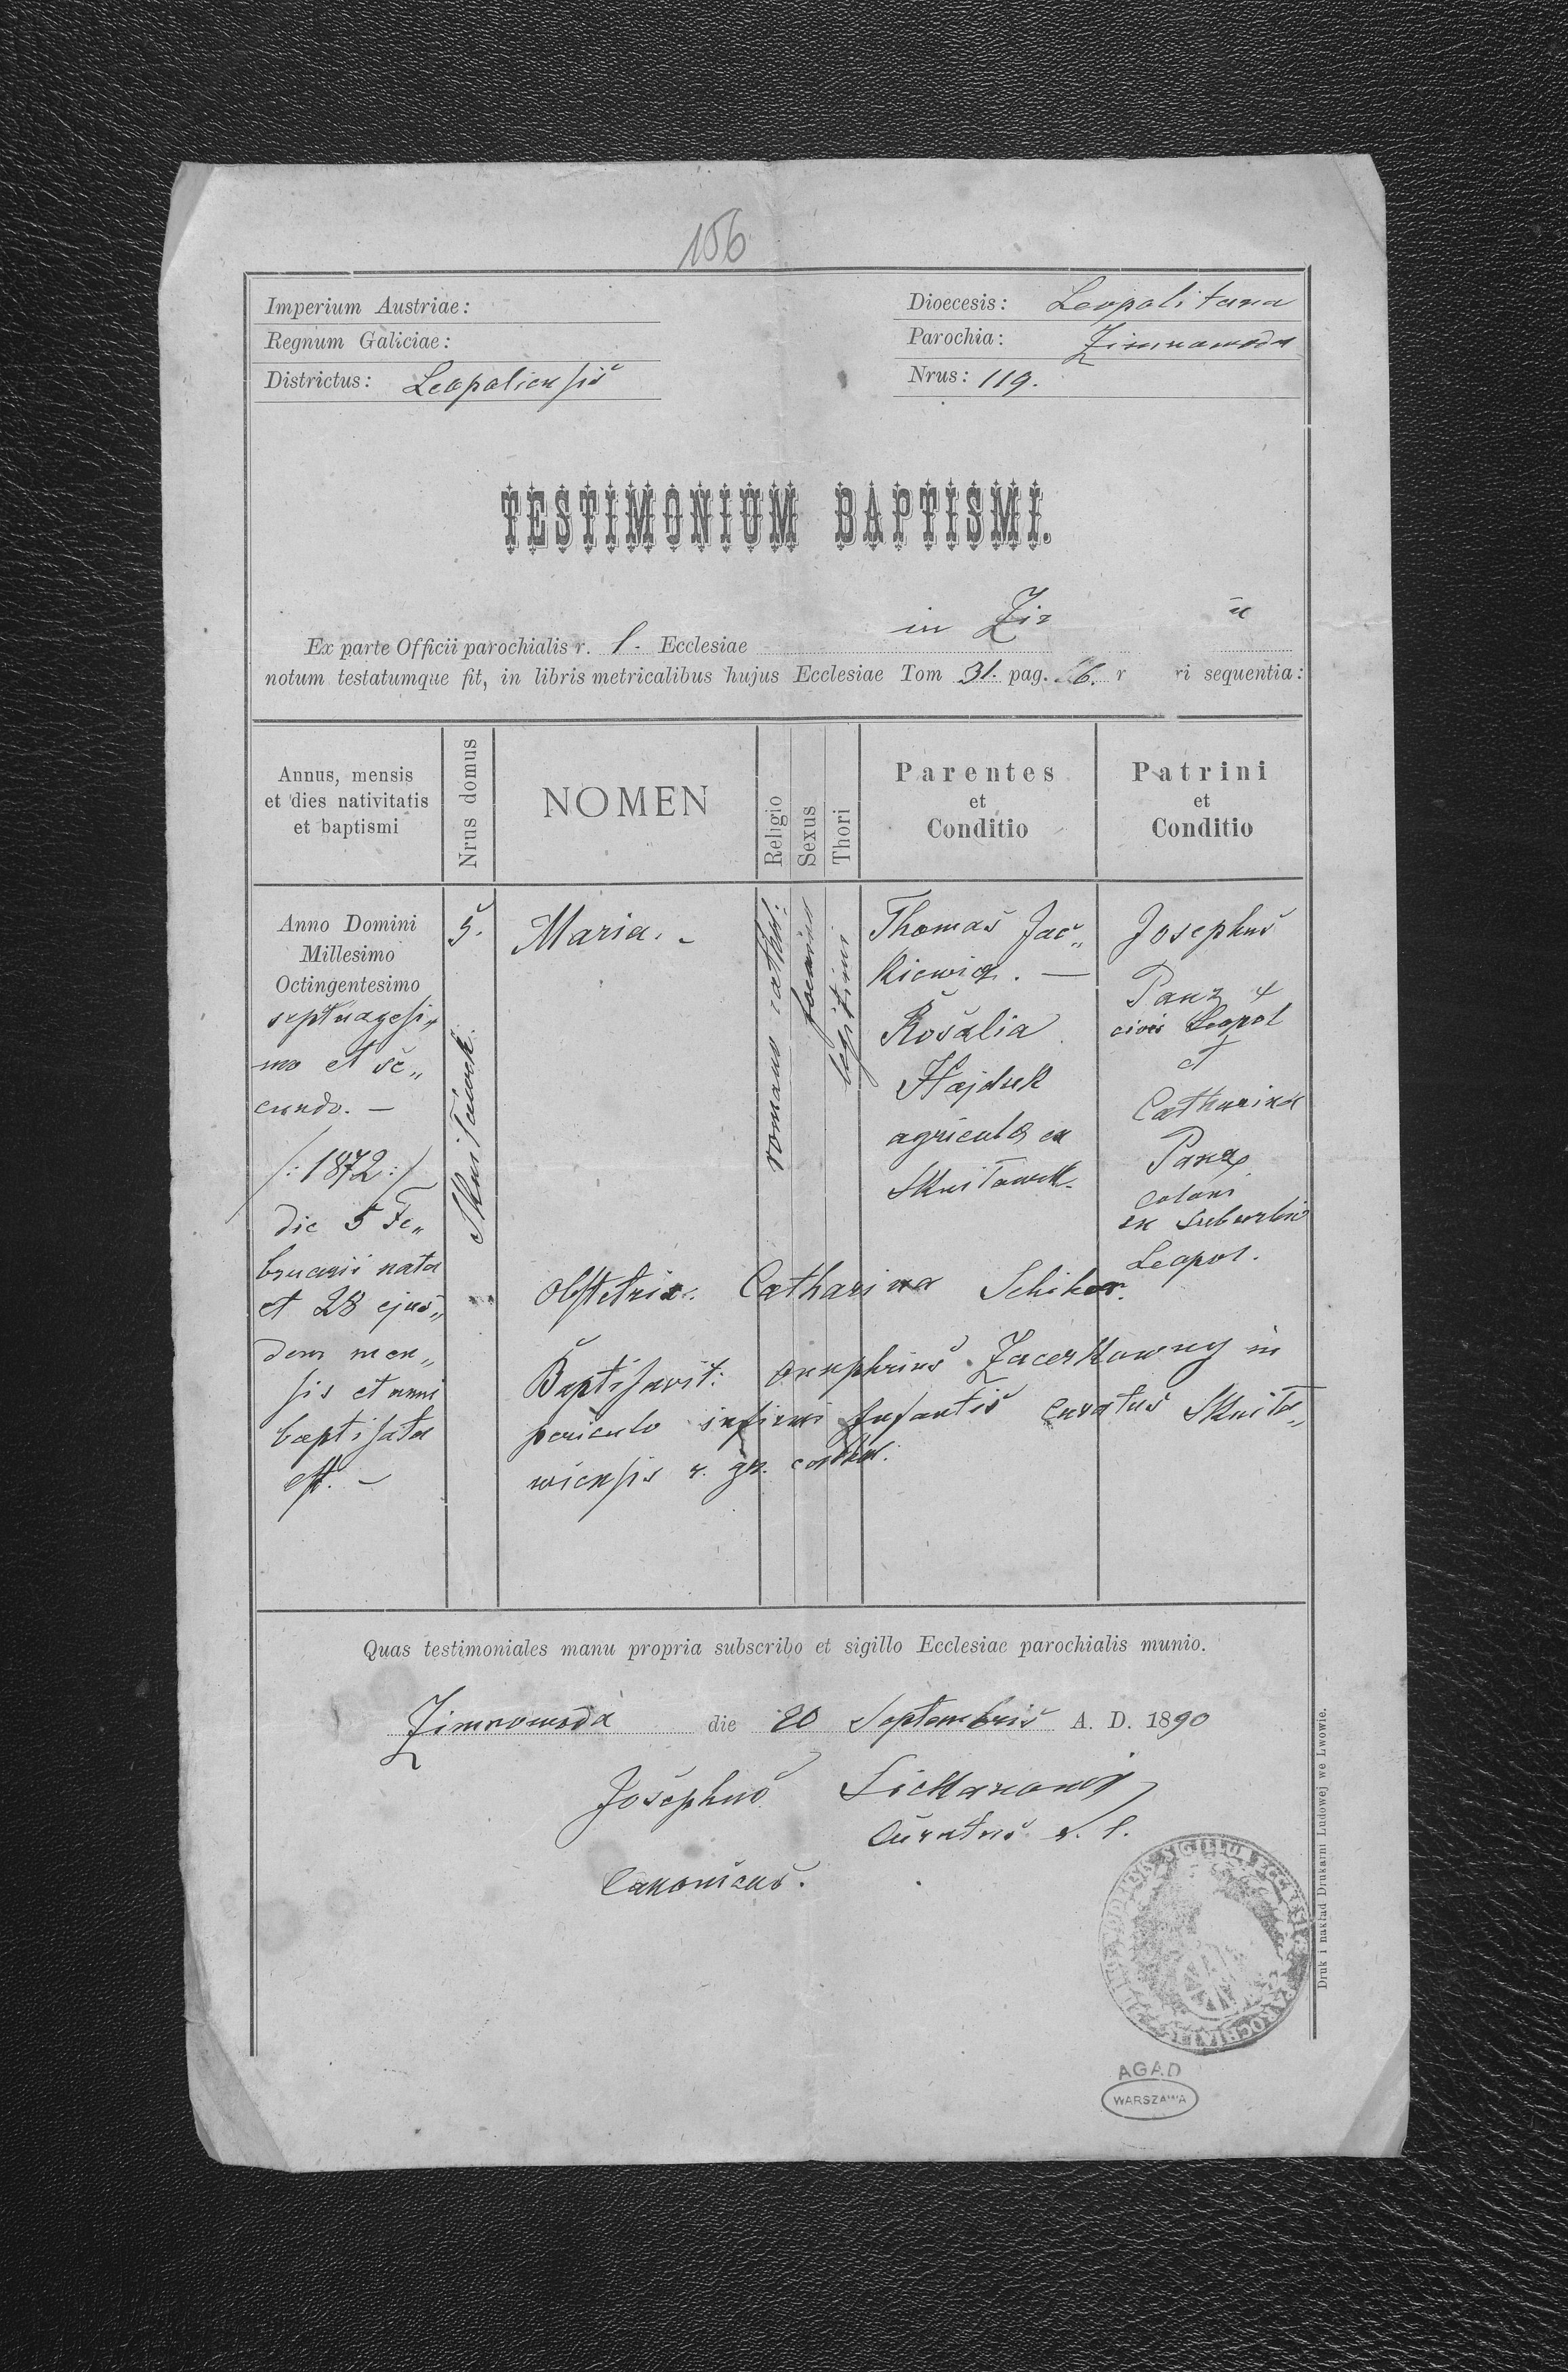 156
Imperium Austriae:
Regnum Galiciae:
Districtus: Leopoliensis
Dioecesis: Leopolitana
Parochia: Zimnawoda
Nrus: 119.
TESTIMONIUM BAPTISMI.
Ex parte Officii parochialis r. l. Ecclesiae in
notum testatumque fit, in libris metricalibus hujus Ecclesiae Tom 31. pag. ri sequentia:
Annus, mensis
et dies nativitatis
et baptismi
Nrus domus
NOMEN
Religio
Sexus
Thori
Parentes
et
Conditio
Patrini
et
Conditio
Anno Domini
Millesimo
Octingentesimo
septuagesi„
mo et se„
cundo. —
/: 1872 :/
die 5 Fe„
bruarii nata
et 28 ejus„
dem men„
sis et anni
baptisata
est. —
5.
Skniłówek.
Maria. -
romano cathol:
legitimi
Thomas Jac„
kiewicz. —
Rosalia
Hajduk
agricola ex
Skniłowek.
Josephus
Panz
civis Leopol
et
Catharina
Panz
coloni
ex suburbio
Leopol.
Obstetrix: Catharina
Baptisavit: Onuphrius in
periculo infirmi Infantis curatus Skniło„
wiensis r. gr. cathol.
Quas testimoniales manu propria subscribo et sigillo Ecclesiae parochialis munio.
Zimnowoda die 20 Septembris A. D. 1890
Josephus
Curatus r. l.
Canonicus.
SIGILLUM ECCLESIAE PAROCHIALIS
AGAD
WARSZAWA
Druk i nakład Drukarni Ludowej we Lwowie.